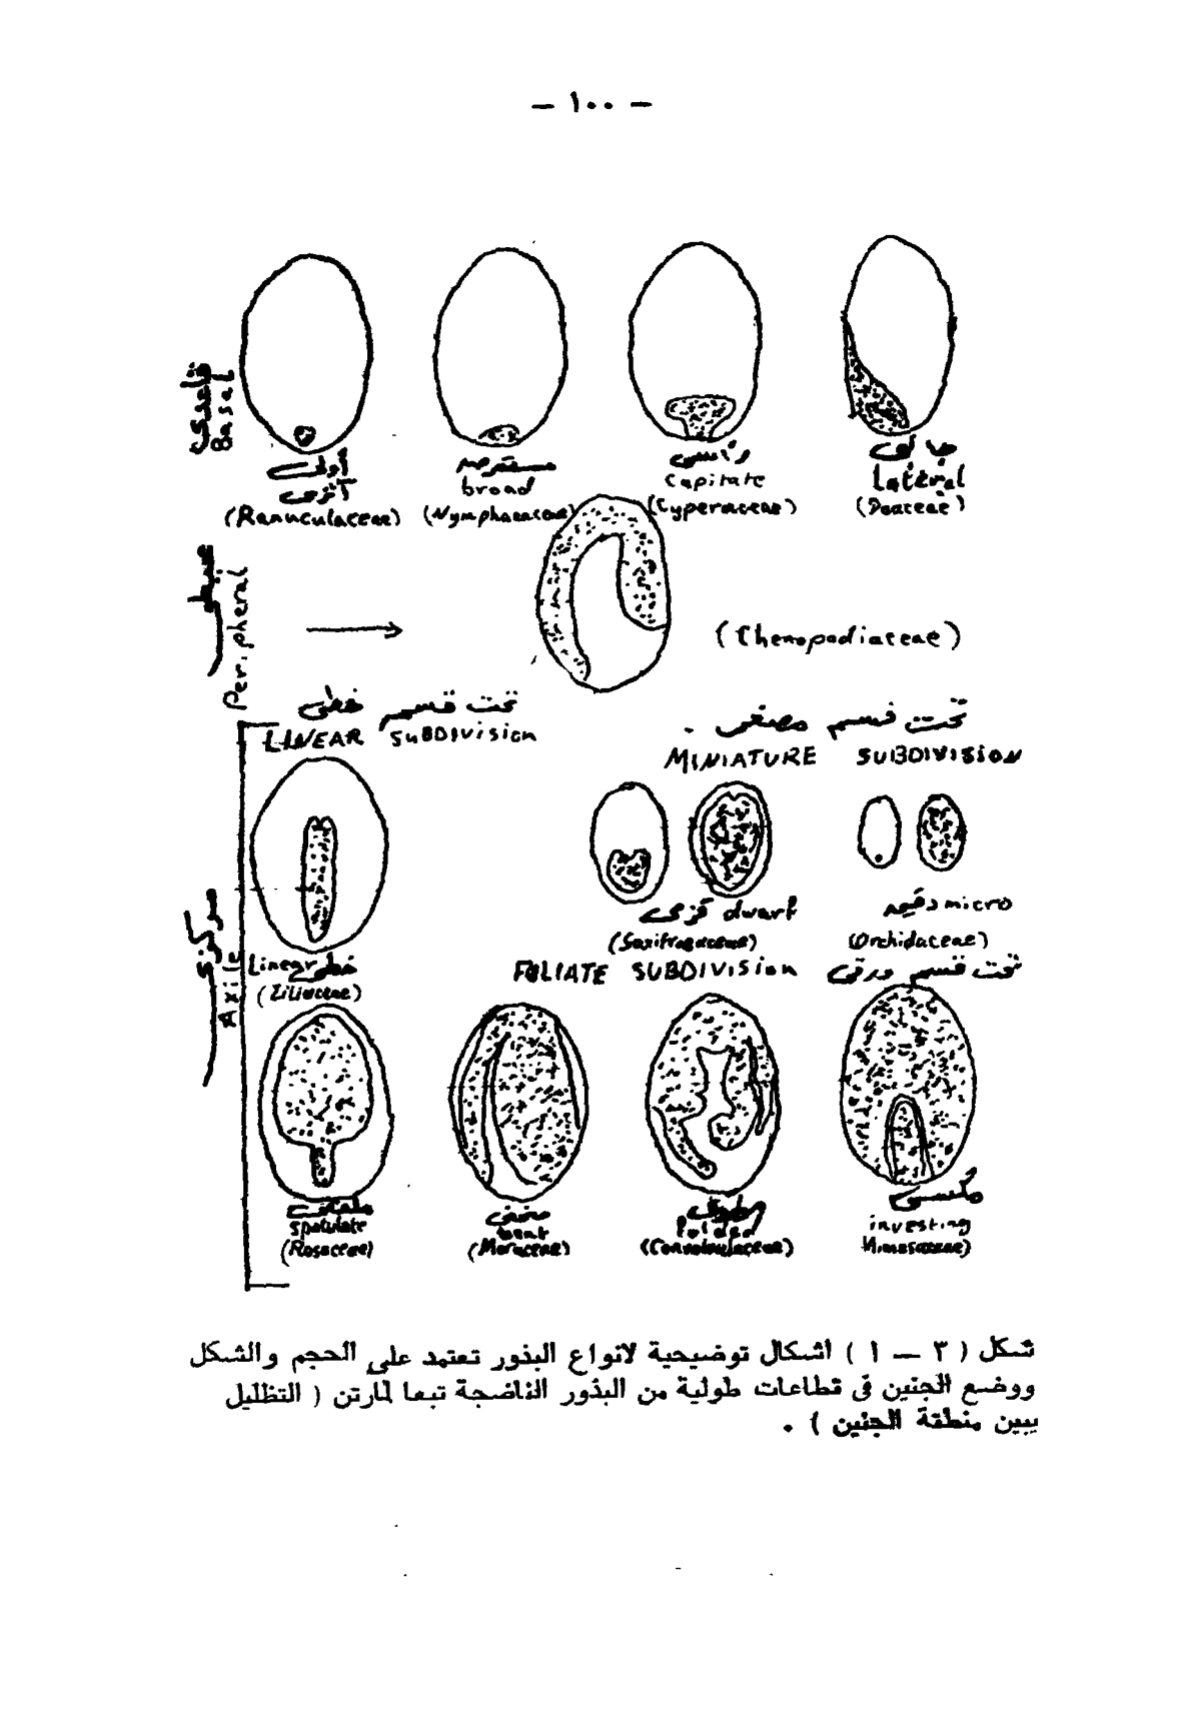 — ١٠٠ —
قاعدى
Basal
أولى
أثرى
(Ranuculaceae)
broad
(Nymphaeaceae)
رأسى
Capitate
(Cyperaceae)
جانبى
Lateral
(Poaceae)
Peripheral
(Chenopodiaceae)
تحت قسم خطى
LINEAR SUBDIVISION
تحت قسم مصغر .
MINIATURE SUBDIVISION
مركزى
Axile
Linear خطى
(Liliaceae)
قزمى dwarf
(Saxifragaceae)
دقيقه micro
(Orchidaceae)
FOLIATE SUBDIVISION تحت قسم ورقى
spatulate
(Rosaceae)
bent
(Moraceae)
folded
(Convolvulaceae)
investing
Mimosaceae)
شكل ( ٣ — ١ ) اشكال توضيحية لانواع البذور تعتمد على الحجم والشكل
ووضع الجنين فى قطاعات طولية من البذور الناضجة تبعا لمارتن ( التظليل
يبين منطقة الجنين ) .